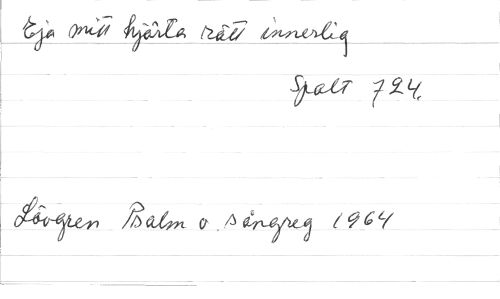 Eja mitt hjärta rätt innerlig
Spalt 724.
Lövgren Psalm o. sångreg 1964